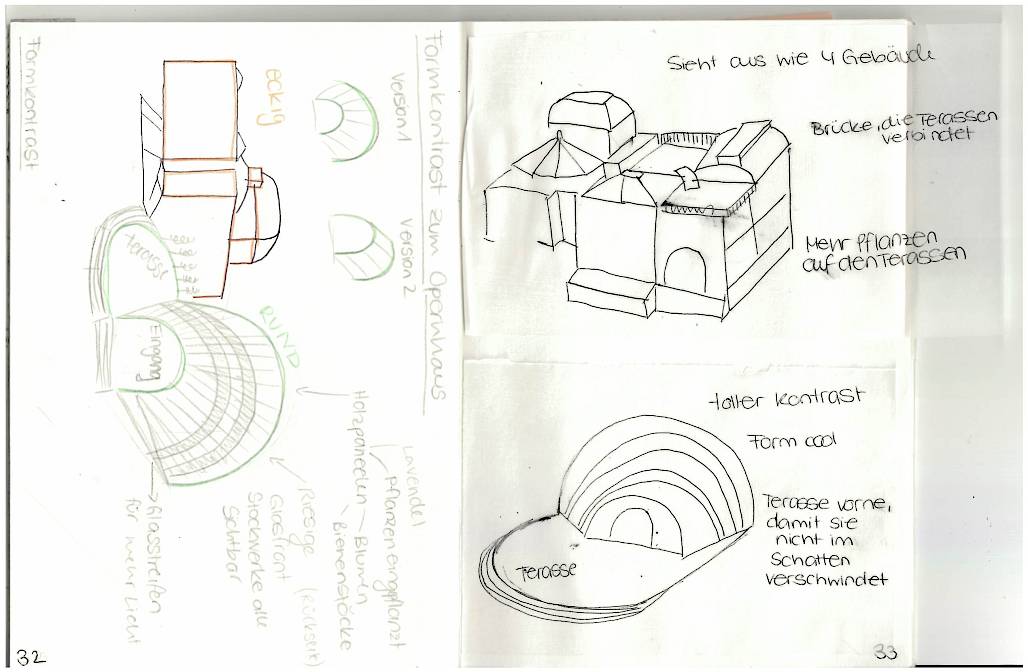 Formkontrast
Formkontrast zum Opernhaus
Version 1
Version 2
eckig
RUND
Terasse
Eingang
Holzpaneelen – Blumen
Bienenstöcke
Pflanzen eingpflanzt
Lavendel
Riesige (Rückseite)
Glasfront
Stockwerke alle
Sichtbar
Glasstreifen
für mehr Licht
32
Sieht aus wie 4 Gebäude
Brücke, die Terassen
verbindet
Mehr Pflanzen
auf den Terassen
toller Kontrast
Form cool
Terasse vorne,
damit sie
nicht im
Schatten
verschwindet
Terasse
33